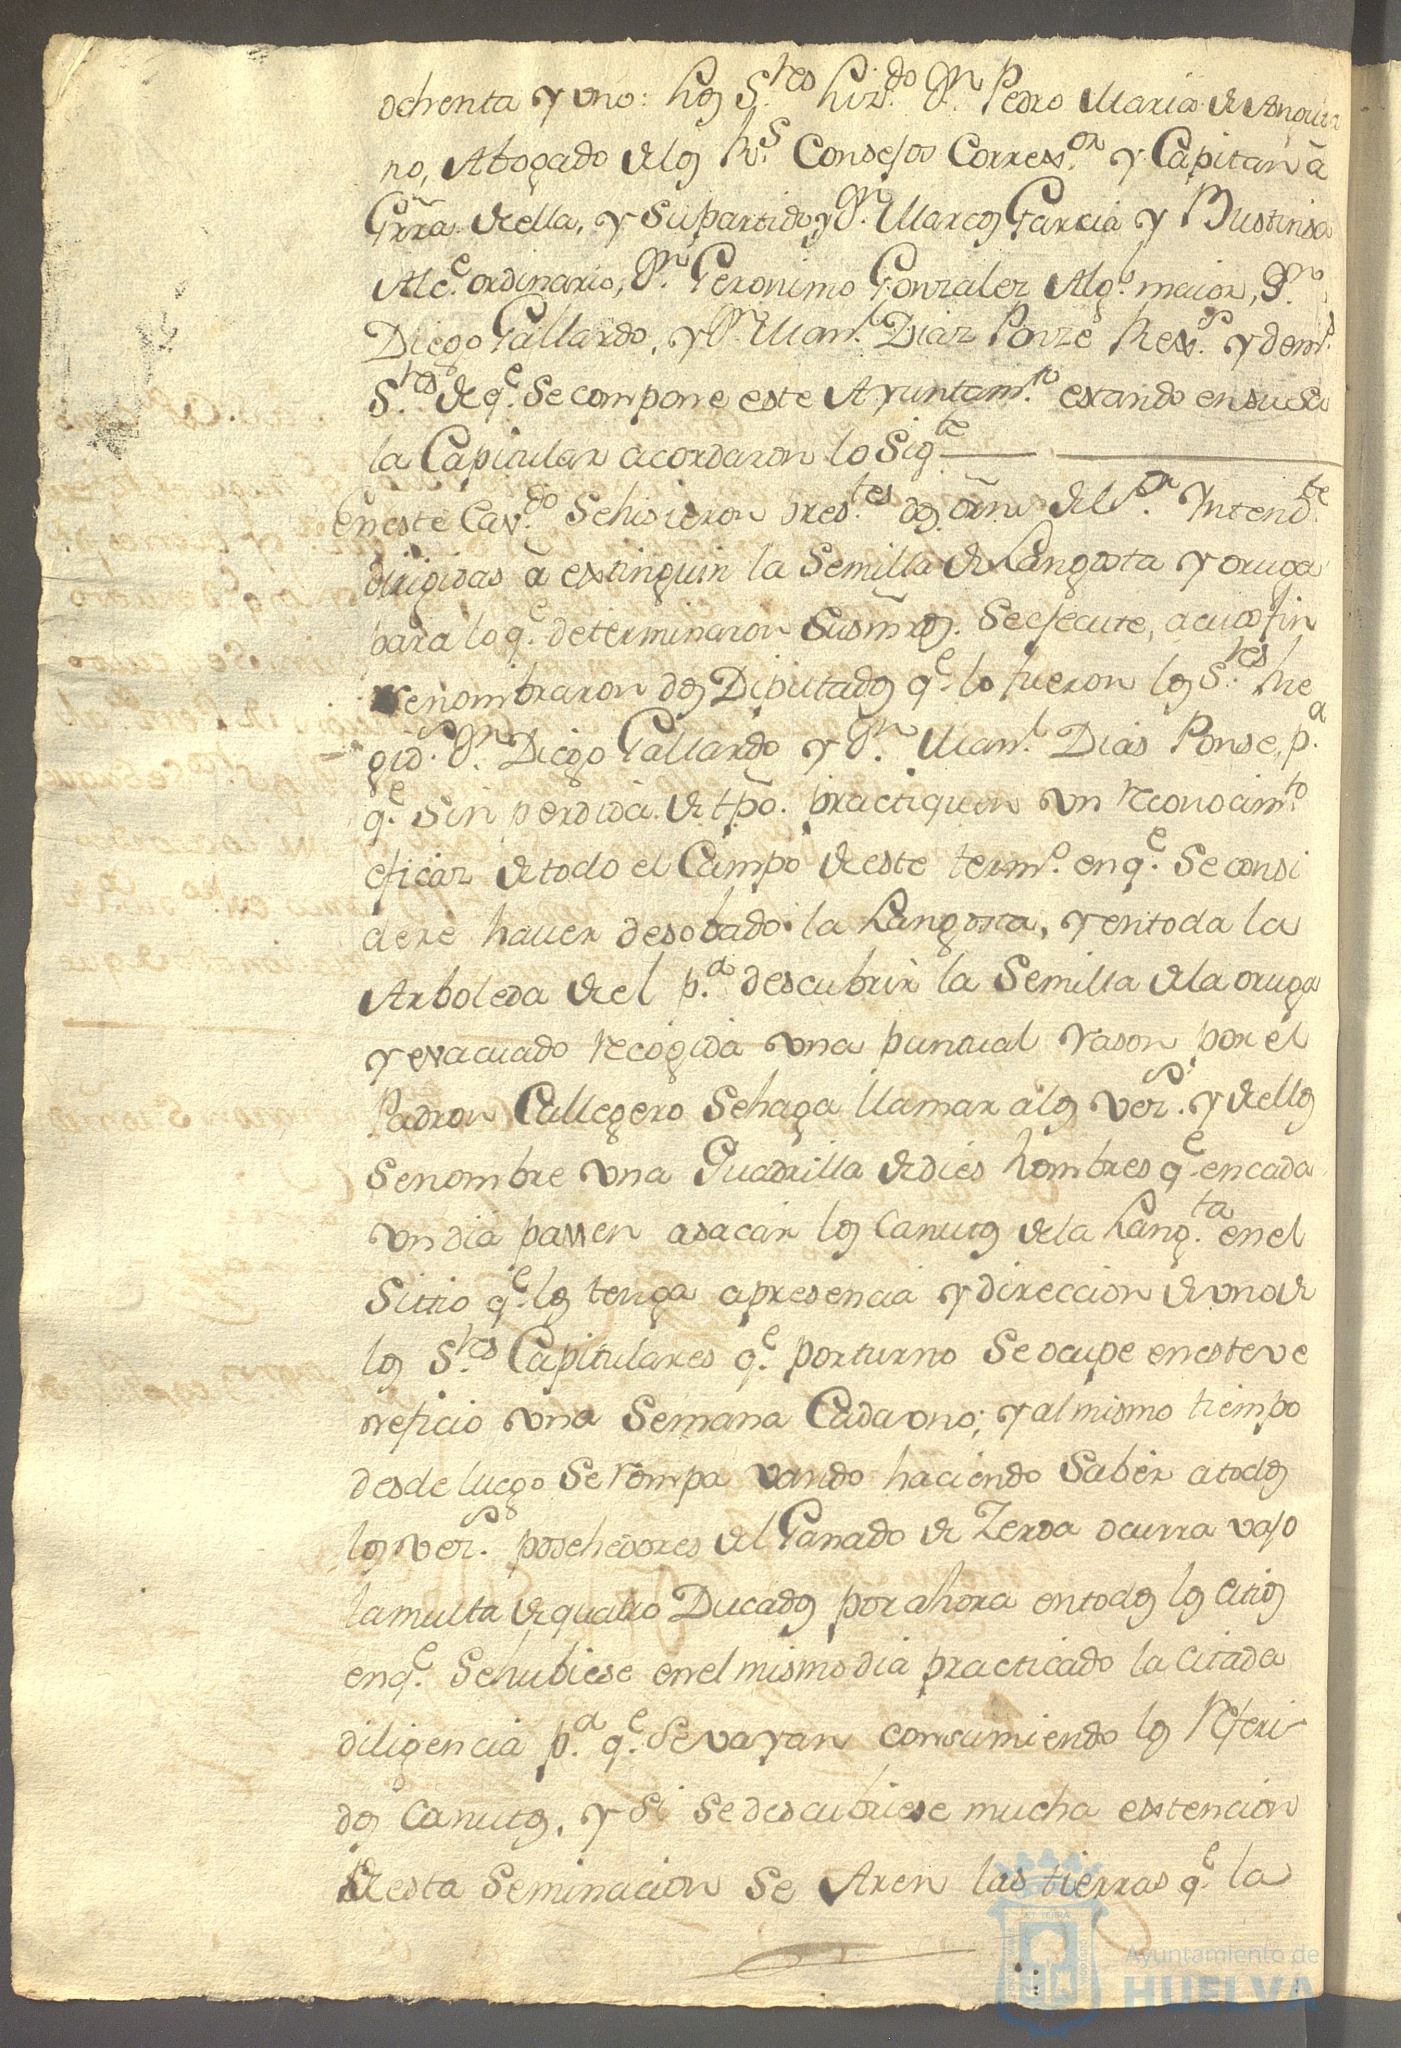 ochenta y uno: los S.res Liz.do D.n Pedro Maria de Anguia
no, Abogado de los R.s Consejos Correx.or y Capitan â
Grra. de ella, y su partido, y D.n Marcos Garcia y Bustinsa
Alc.e ordinario, D.n Geronimo Gonzalez Alg.l maior, D.n
Diego Gallardo, y D.n Man.l Diaz Ponze Rex.s y dem.s
S.res de q.e se compone este Ayuntam.to estando en su Sa
la Capitular acordaron lo Sig.te
En este Cav.do se hisieron pres.tes dos orns del S.or Yntend.te
dirigidas â extinguir la Semilla de Langosta y oruga
para lo q.e determinaron sus mrds. se ejecute, a cuio fin
se nombraron dos Diputados q.e lo fueron los S.res Re
gid.s D.n Diego Gallardo y D.n Man.l Dias Ponse, p.a
q.e sin perdida de tpo. practiquen un reconocim.to
eficaz de todo el Campo de este term.o en q.e se consi
dere haver desobado la Langosta, y en toda la
Arboleda de el p.a descubrir la Semilla de la oruga
y evacuado recogida una puntual rason por el
Padron Callegero se haga llamar a los vez.s y de ellos
se nombre una Quadrilla de dies hombres q.e en cada
un dia pasen a sacar los canutos de la Lang.ta en el
Sitio q.e los tenga a presencia y direccion de uno de
los S.res Capitulares q.e por turno se ocupe en este ve
neficio una Semana Cada uno; y al mismo tiempo
desde luego se rompa vando haciendo saber a todos
los vez.s posehedores del Ganado de Zerda ocurra vajo
la multa de quatro Ducados por ahora en todos los citios
en q.e se hubiese en el mismo dia practicado la citada
diligencia p.a q.e se vayan consumiendo los referi-
dos canutos, y si se descubriese mucha extencion
de esta Seminacion se Aren las tierras q.e la
Ayuntamiento de
HUELVA